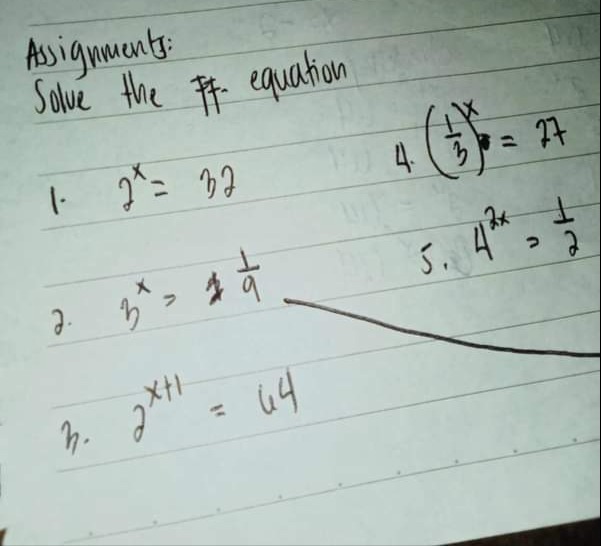 Assignments:
Solve the ff. equation
1. 2^x = 32
2. 3^x = 1/9
3. 2^x+1 = 64
4. (1/3)^x = 27
5. 4^2x = 1/2